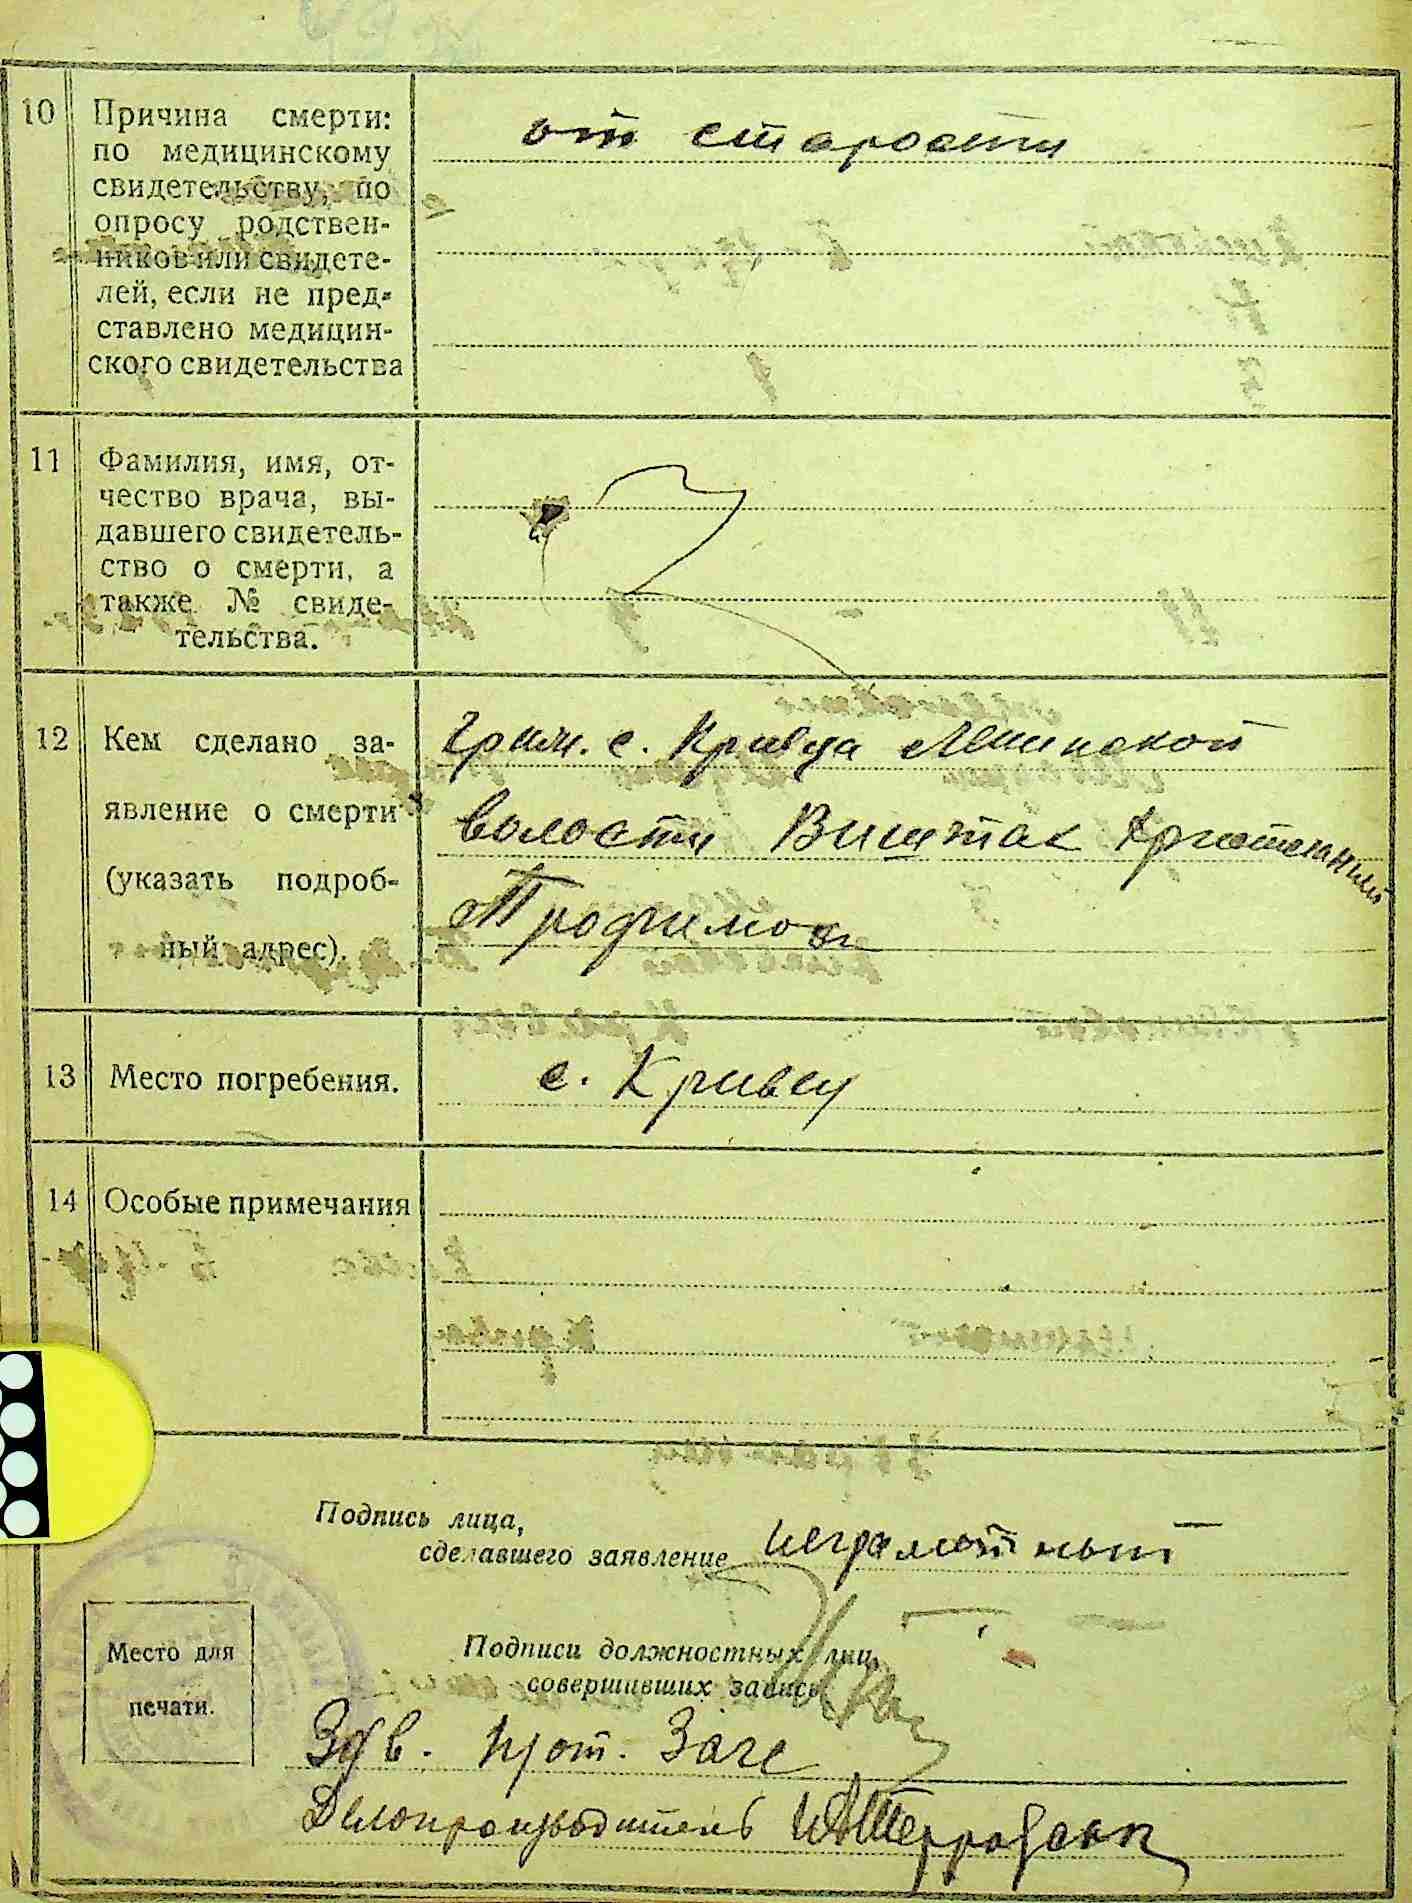 10 Причина смерти:
по медицинскому
свидетельству, по
опросу родствен-
ников или свидете-
лей, если не пред-
ставлено медицин-
ского свидетельства
от старости
11 Фамилия, имя, от-
чество врача, вы-
давшего свидетель-
ство о смерти, а
также № свиде-
тельства.
12 Кем сделано за-
явление о смерти
(указать подроб-
ный адрес).
граж. с. Кривца Ленинской
волости Виштак
13 Место погребения.
с. Кривец
14 Особые примечания
Подпись лица,
сделавшего заявление неграмотный
Место для
печати.
Подписи должностных лиц,
совершивших запись
Зав. Загс
Делопроизводитель